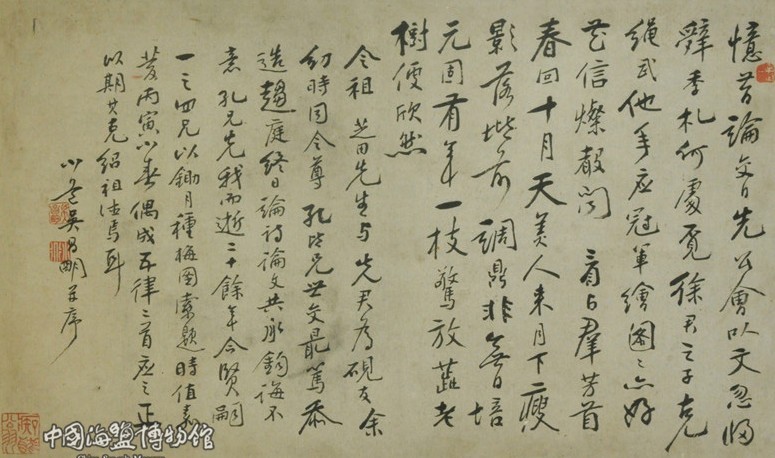 憶昔論文日先公會以文忽歸
辤季札何處覓徐君之子克
繩武他年應冠軍繪圖〻亦好
花信燦聞 看占羣芳首
春回十月天美人來月下瘦
影落堦前調鼎非無日培
元固有年一枝驚放蕋老
樹便欣然
令祖 芝田先生与先君為硯友余
幼時因令尊 孔堦兄世交最篤忝
造趨庭終日論詩論文共承鈞誨不
意孔兄先我而逝二十餘年今賢嗣
一之四兄以鋤月種梅圖索題時值嘉
慶丙寅小春偶成五律二首應之正
以期其克紹祖德焉耳
小吳明並序
中國海鹽博物館